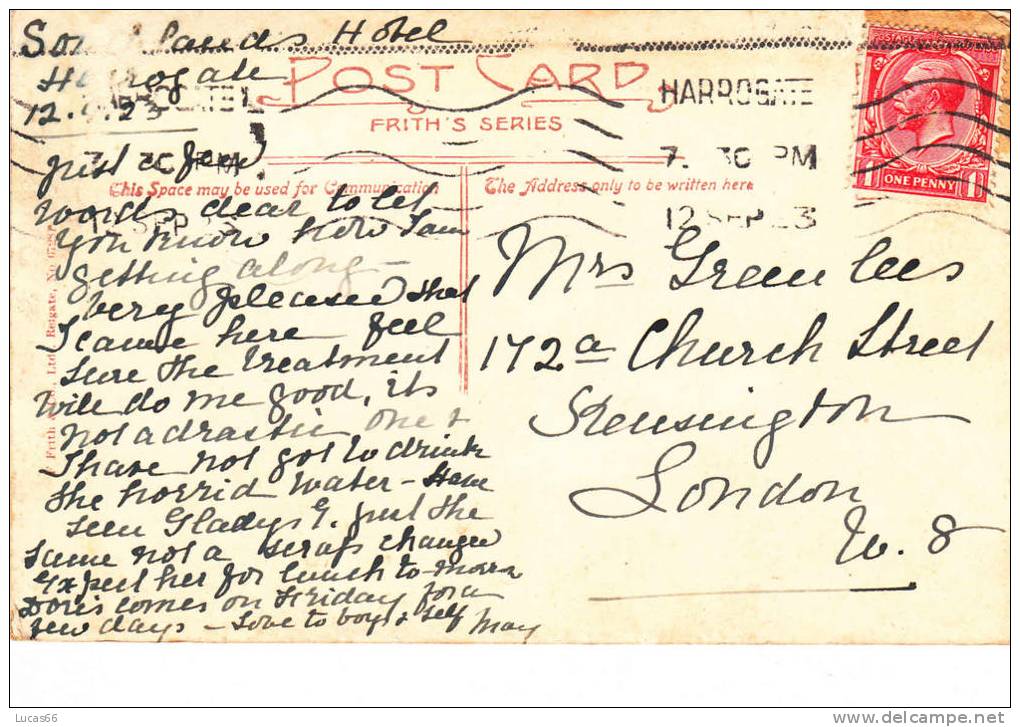 Hotel
Harrogate
12.9.23
POST CARD
FRITH'S SERIES
HARROGATE
7. 30 PM
12 SEP 23
POSTAGE
ONE PENNY
This Space may be used for Communication
The Address only to be written here
just a few
words dear to let
you know how I am
getting along –
very pleased that
I came here feel
sure the treatment
will do me good, its
not a drastic one &
I have not got to drink
the horrid water – Have
seen Gladys G. just the
same not a scrap changed
Expect her for lunch to-morrow
Doris comes on Friday for a
few days – Love to boys & self May
Mrs Greenlees
172a Church Street
Kensington
London
W. 8
Frith Ltd., Reigate, No
Lucas66
www.delcampe.net